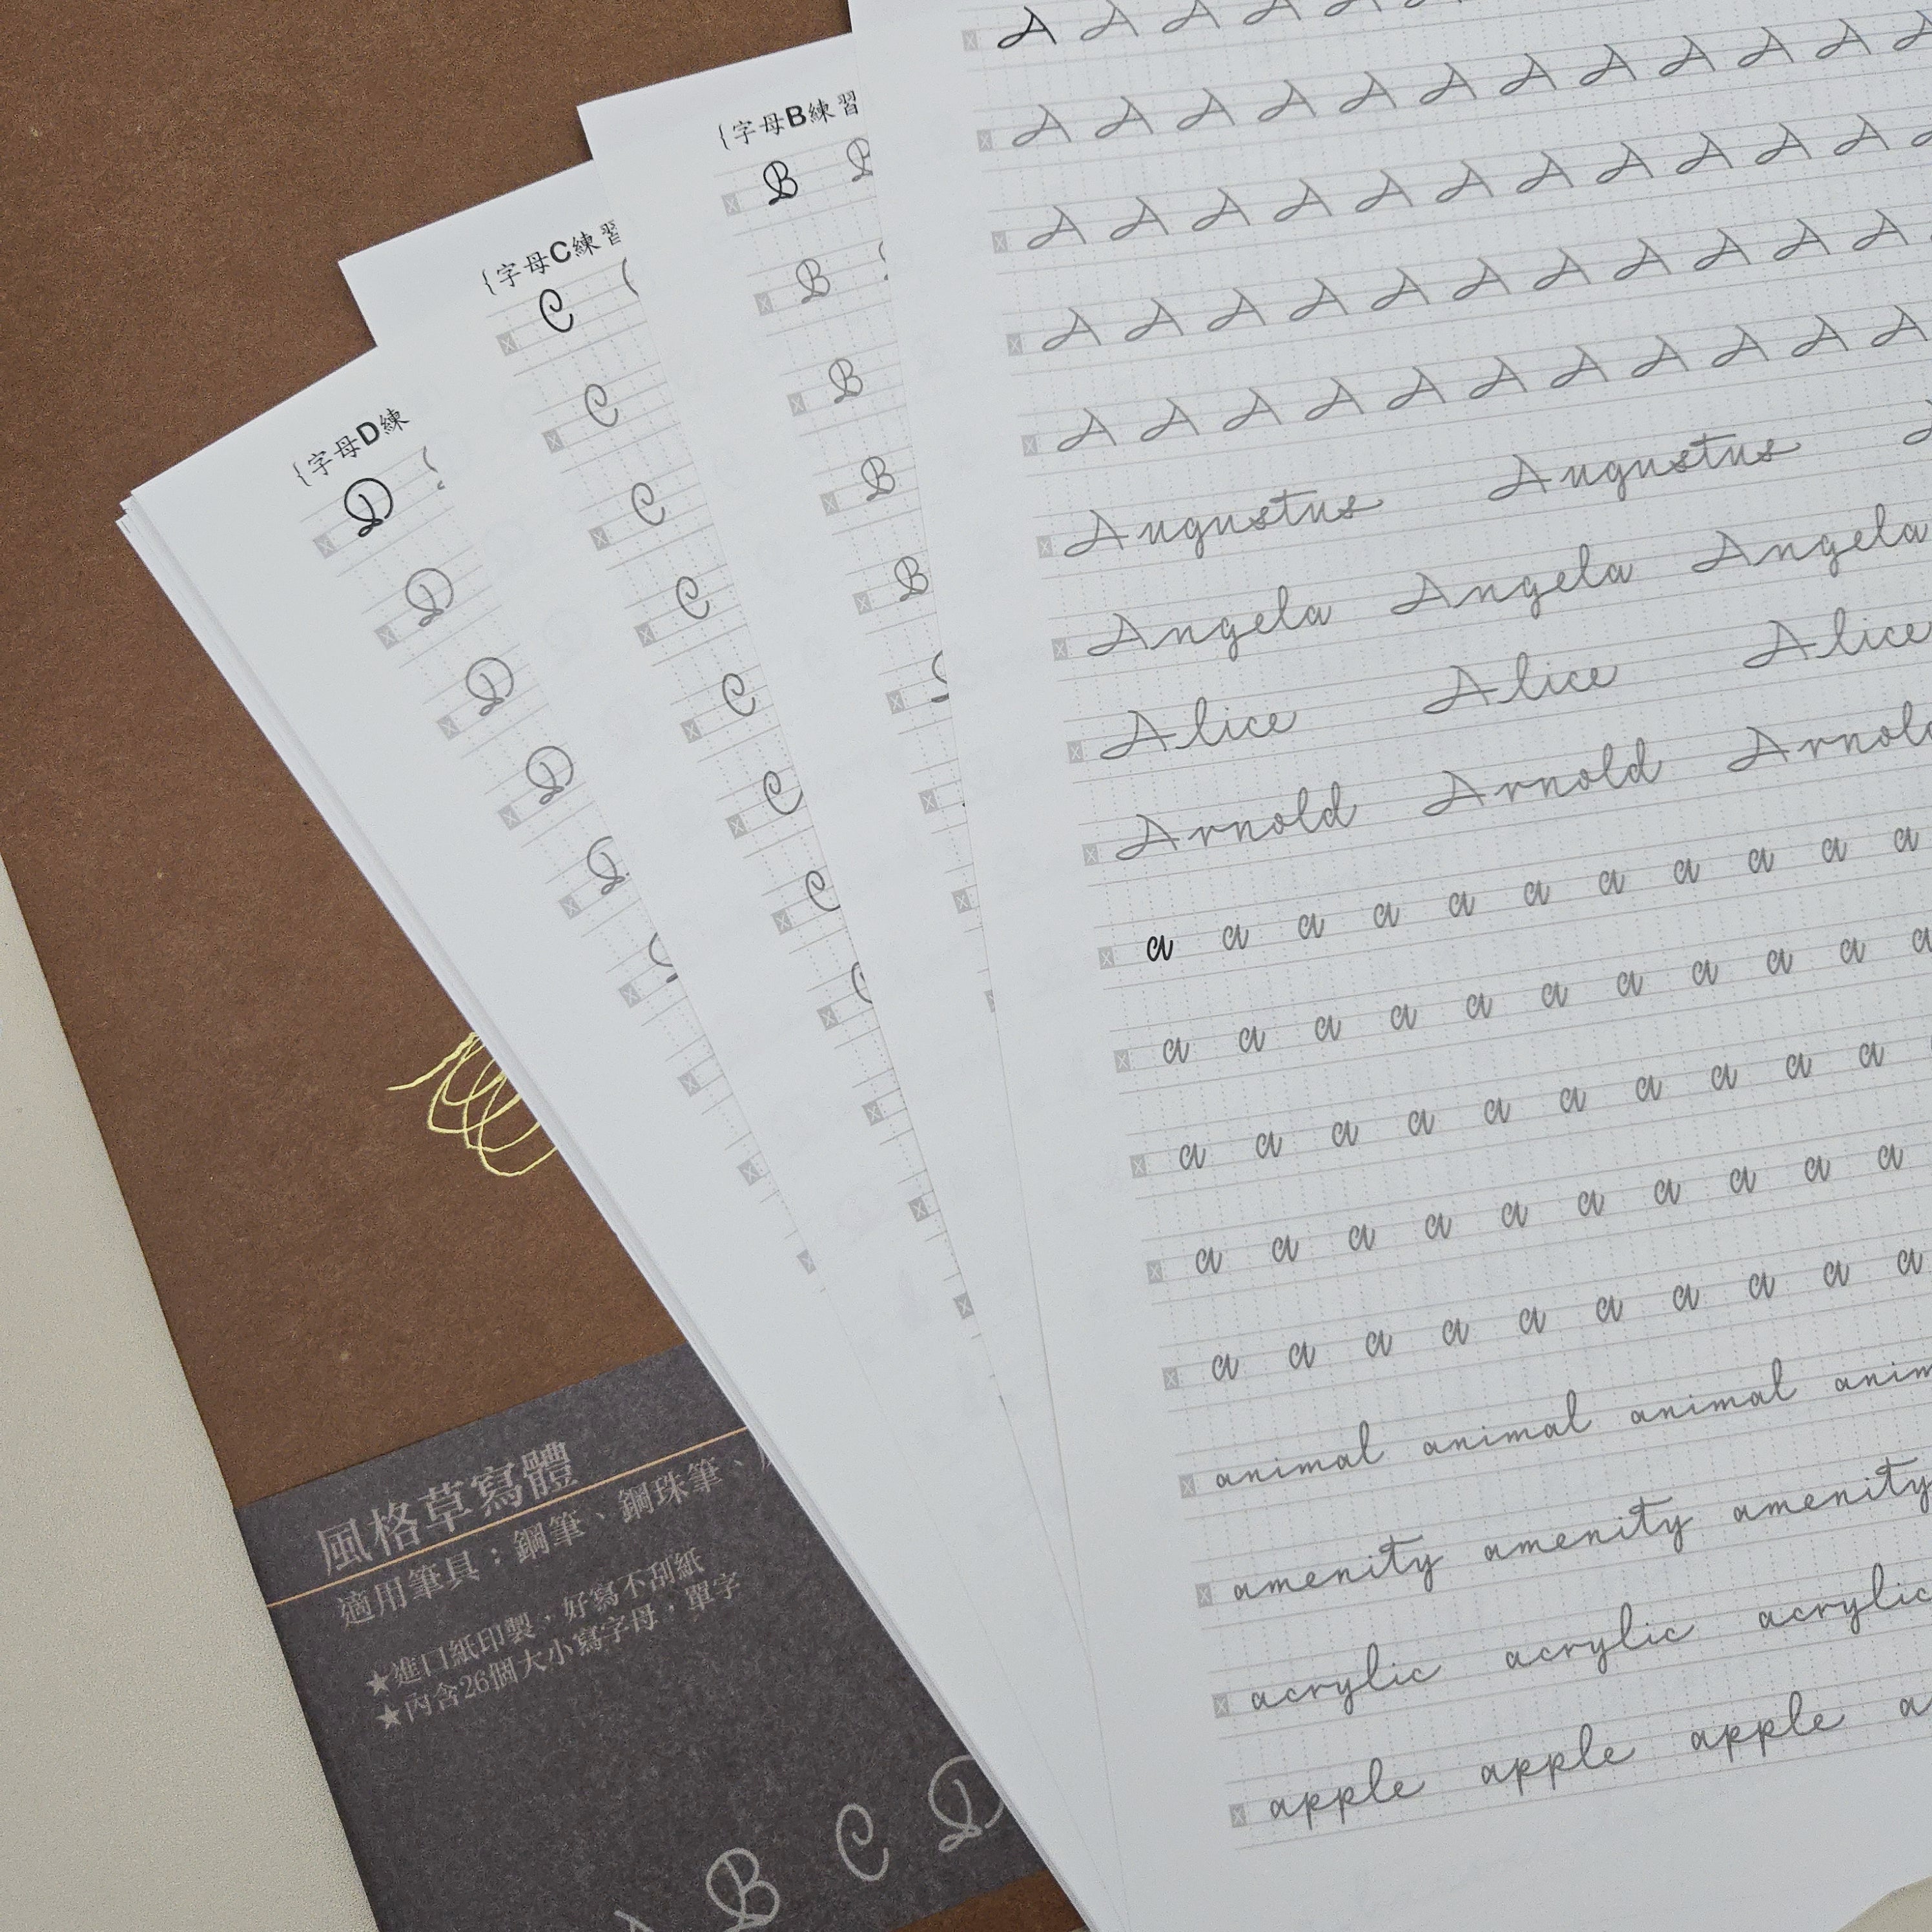 {字母D練
D
D
D
D
D
{字母C練習
C
C
C
C
C
C
C
{字母B練習
B B
B
B
B
B
A A A A A
A A A A A A A A A A A A
A A A A A A A A A A A
A A A A A A A A A A A
A A A A A A A A A A A
Augustus Augustus
Angela Angela Angela
Alice Alice Alice
Arnold Arnold Arnold
a a a a a a a a a a a
a a a a a a a a a a a
a a a a a a a a a a
a a a a a a a a a a
a a a a a a a a a a
animal animal animal anim
amenity amenity amenity
acrylic acrylic acrylic
apple apple apple a
風格草寫體
適用筆具：鋼筆、鋼珠筆、
★進口紙印製，好寫不刮紙
★內含26個大小寫字母，單字
B C D